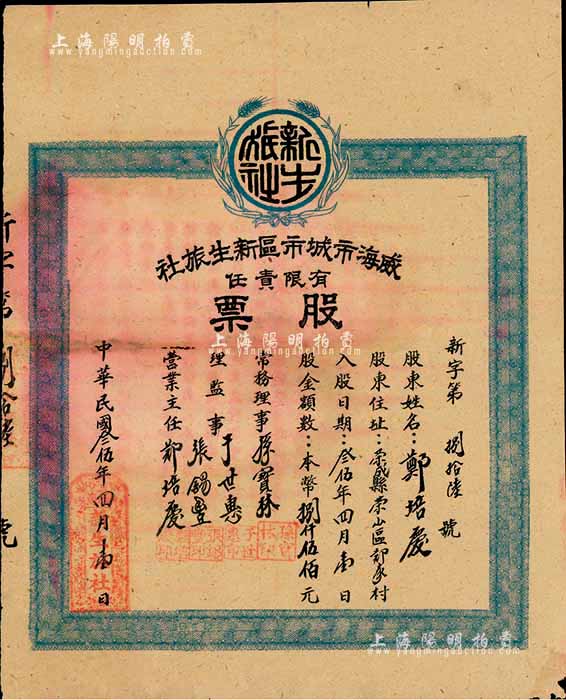 上海陽明拍賣
www.yangmingauction.com
新生
旅社
威海市城市區新生旅社
有限責任
股票
新字第 捌拾陸 號
股東姓名：鄭培慶
股東住址：榮成縣崇山區鄒家村
入股日期：叁伍年四月壹日
股金額數：本幣捌仟伍佰元
常務理事 孫寶林
理監事 于世惠
張錫豐
營業主任 鄭培慶
中華民國叁伍年四月壹日
新字第 捌拾陸 號
上海陽明拍賣
www.yangmingauction.com
上海陽明拍賣
www.yangmingauction.com